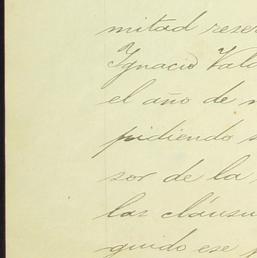 mitad reser
Ignacio Vald
el año de m
pidiendo s
sor de la
las cláusu
guido ese p